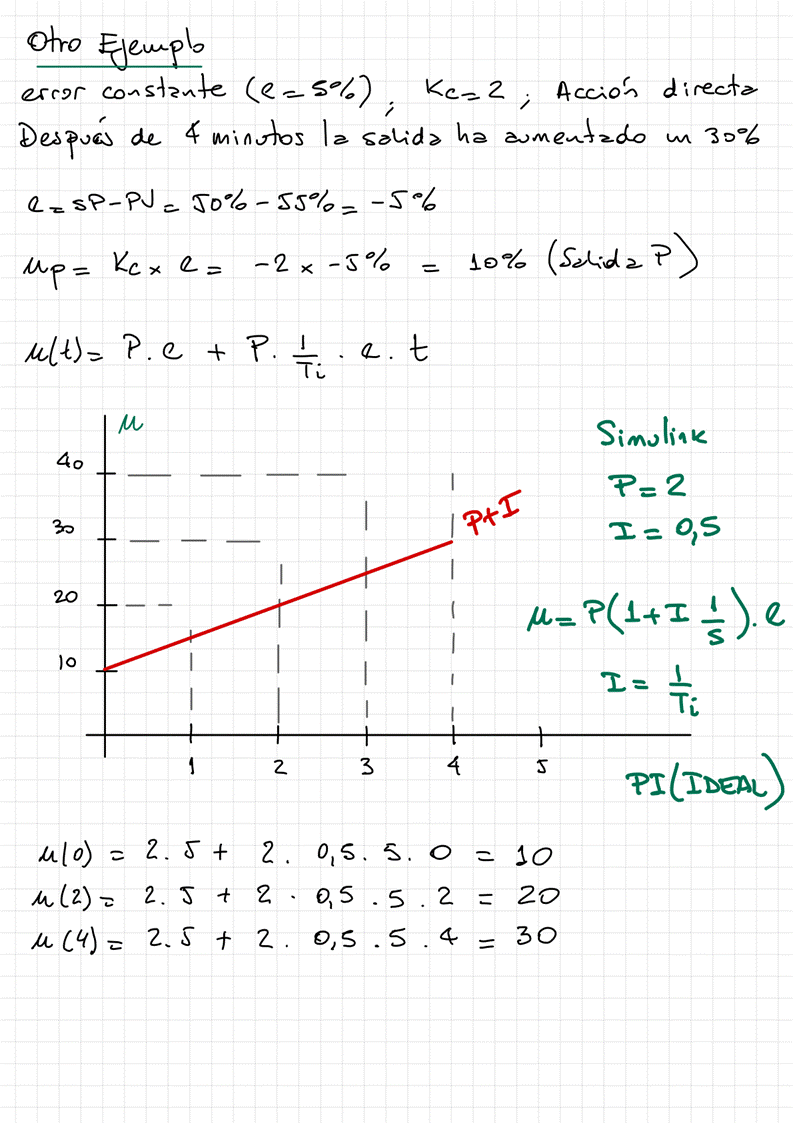 Otro Ejemplo
error constante (e=5%), Kc=2; Acción directa
Después de 4 minutos la salida ha aumentado un 30%
e = SP-PV = 50% - 55% = -5%
μp = Kc x e = -2 x -5% = 10% (Salida P)
μ(t) = P. e + P. 1/Ti . e. t
μ
40
30
20
10
1 2 3 4 5
P+I
Simulink
P=2
I=0,5
μ=P(1+I 1/s).e
I = 1/Ti
PI(IDEAL)
μ(0) = 2.5 + 2. 0,5. 5. 0 = 10
μ(2) = 2.5 + 2 . 0,5 .5 .2 = 20
μ(4) = 2.5 + 2. 0,5 .5 .4 = 30